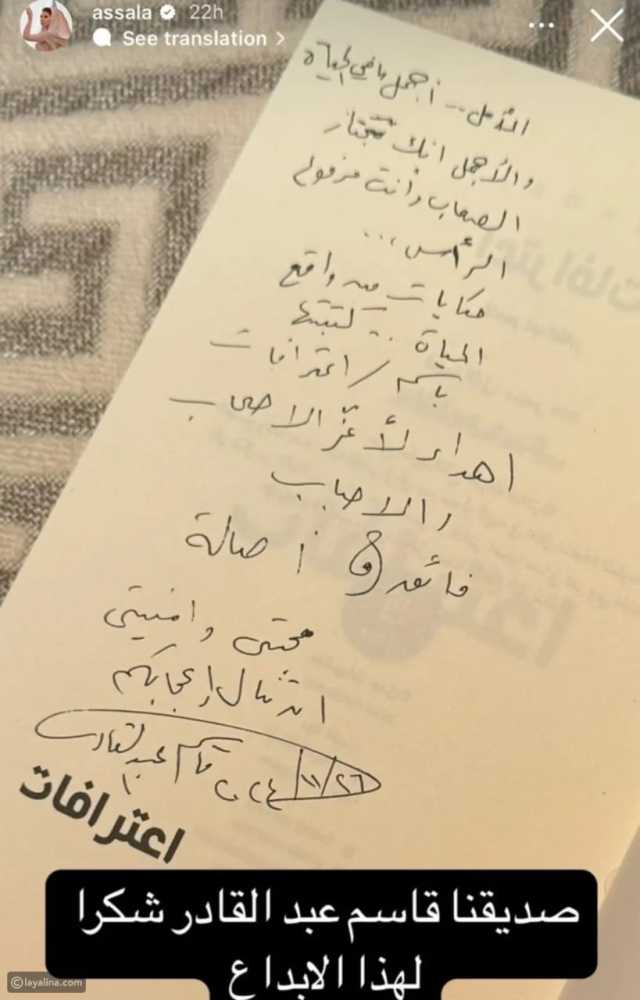 assala 22h
See translation
الأمل .. أجمل ما في الحياة
والأجمل انك تجتاز
الصعاب وأنت مرفوع
الرأس ...
حكايات من واقع
الحياة .. كتبتها
باسم / اعترافات
اهداء لأعزّ الاصحاب
والاحباب
فائق و أصالة
محبتي وامنيتي
ان تنال إعجابكم
قاسم عبد القادر
٢٠٢٤/١١/٢٦
اعترافات
صديقنا قاسم عبد القادر شكرا
لهذا الابداع
©layalina.com